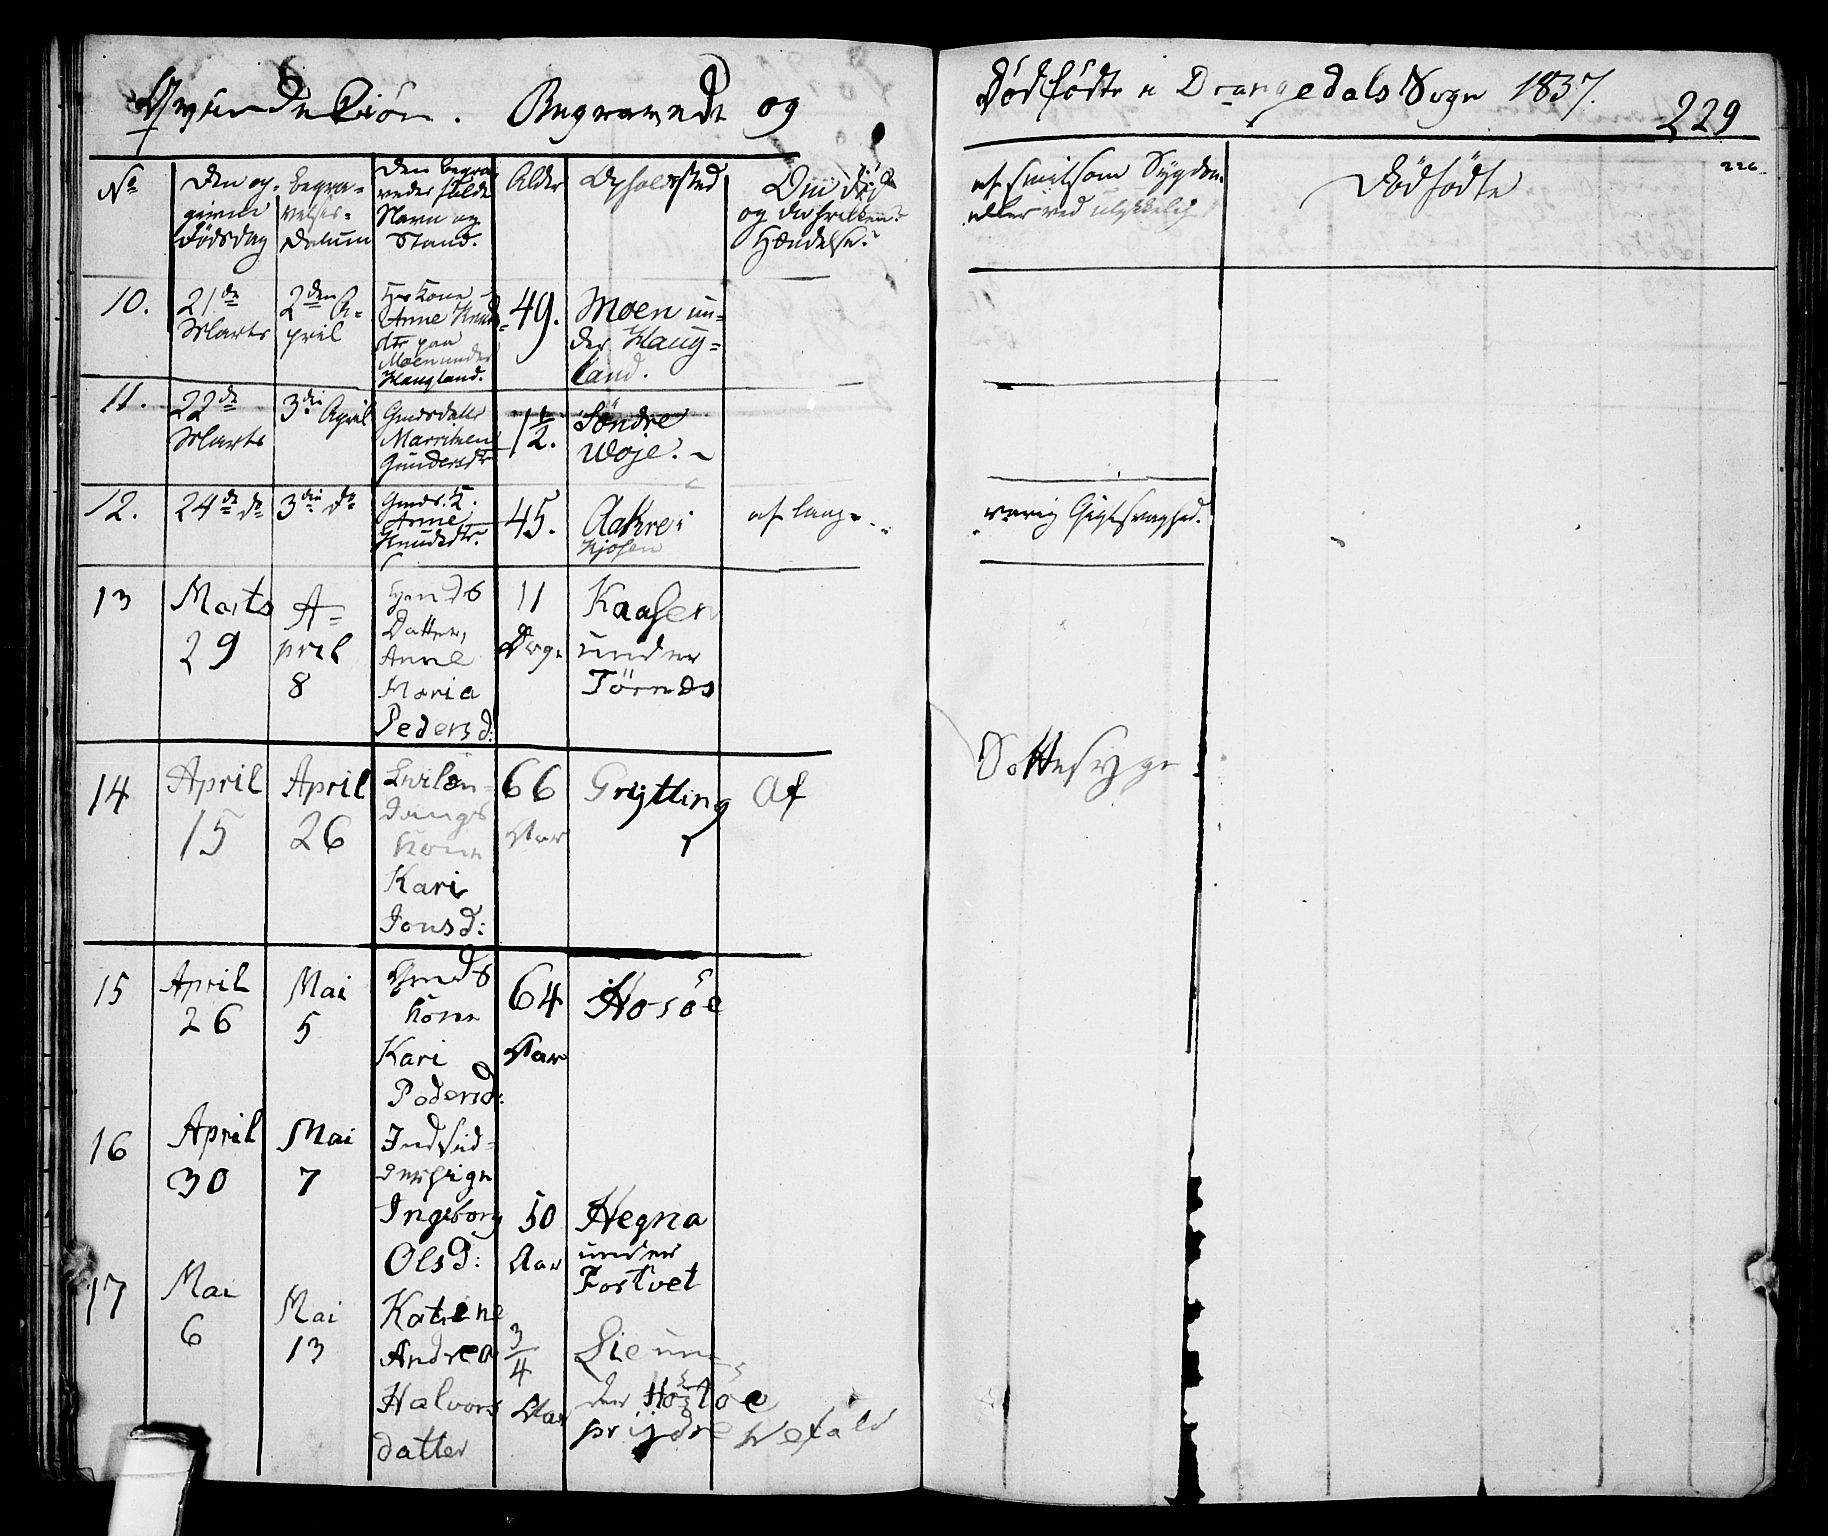 Qvindekiön. Begravede og
Dødfødte i Drangedals Sogn 1837.
229
226
No
Den op-
givne
Dødsdag
Begra-
velses-
Datum
Den begra-
vedes fulde
Navn og
Stand.
Alder
Opholdssted
Om død
og
Hændelse.
af smitsom Sygdom
eller ved ulykkelig
Dødfødte
10.
21de
Marts
2den A-
pril
Kone
Anne Knuds-
dtr paa
Moen under
Haugland.
49.
Moen un-
der Haug-
land.
11.
22de
Marts
3die April
Gmdsdatter
Gundersdtr
1 1/2.
Söndre
Woje.
12.
24de do
3die do
Gmds. K.
Anne
Knudsdtr.
45.
Aakre i
Kjosen
af lang-
varig Gigtsvaghed.
13
Marts
29
A-
pril
8
Hmds
Datter,
Anne
Maria
Pedersd:
11
Dage
Kaasen
under
Törnes
14
April
15
April
26
Kone
Kari
Jonsd:
66
Aar
Grytting
Af
Sottesyge
15
April
26
Mai
5
Gmds
Kone
Kari
Pedersd:
64
Aar
Hosöe
16
April
30
Mai
7
Indsid-
derpige
Ingeborg
Olsd:
50
Aar
Hegna
under
Tortvet
17
Mai
6
Mai
13
Katrine
Andrea
Halvors
datter
3/4
Aar
Lie un-
der Hosöe
Wefald